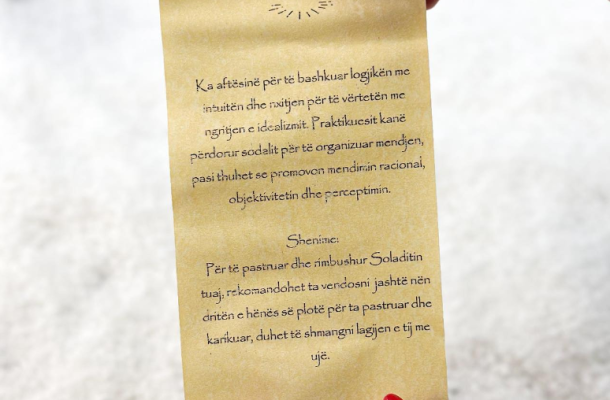 Ka aftësinë për të bashkuar logjikën me
intuitën dhe nxitjen për të vërtetën me
ngritjen e idealizmit. Praktikuesit kanë
përdorur sodalit për të organizuar mendjen,
pasi thuhet se promovon mendimin racional,
objektivitetin dhe perceptimin.
Shenime:
Për të pastruar dhe rimbushur Soladitin
tuaj, rekomandohet ta vendosni jashtë nën
dritën e hënës së plotë për ta pastruar dhe
karikuar, duhet të shmangni lagijen e tij me
ujë.